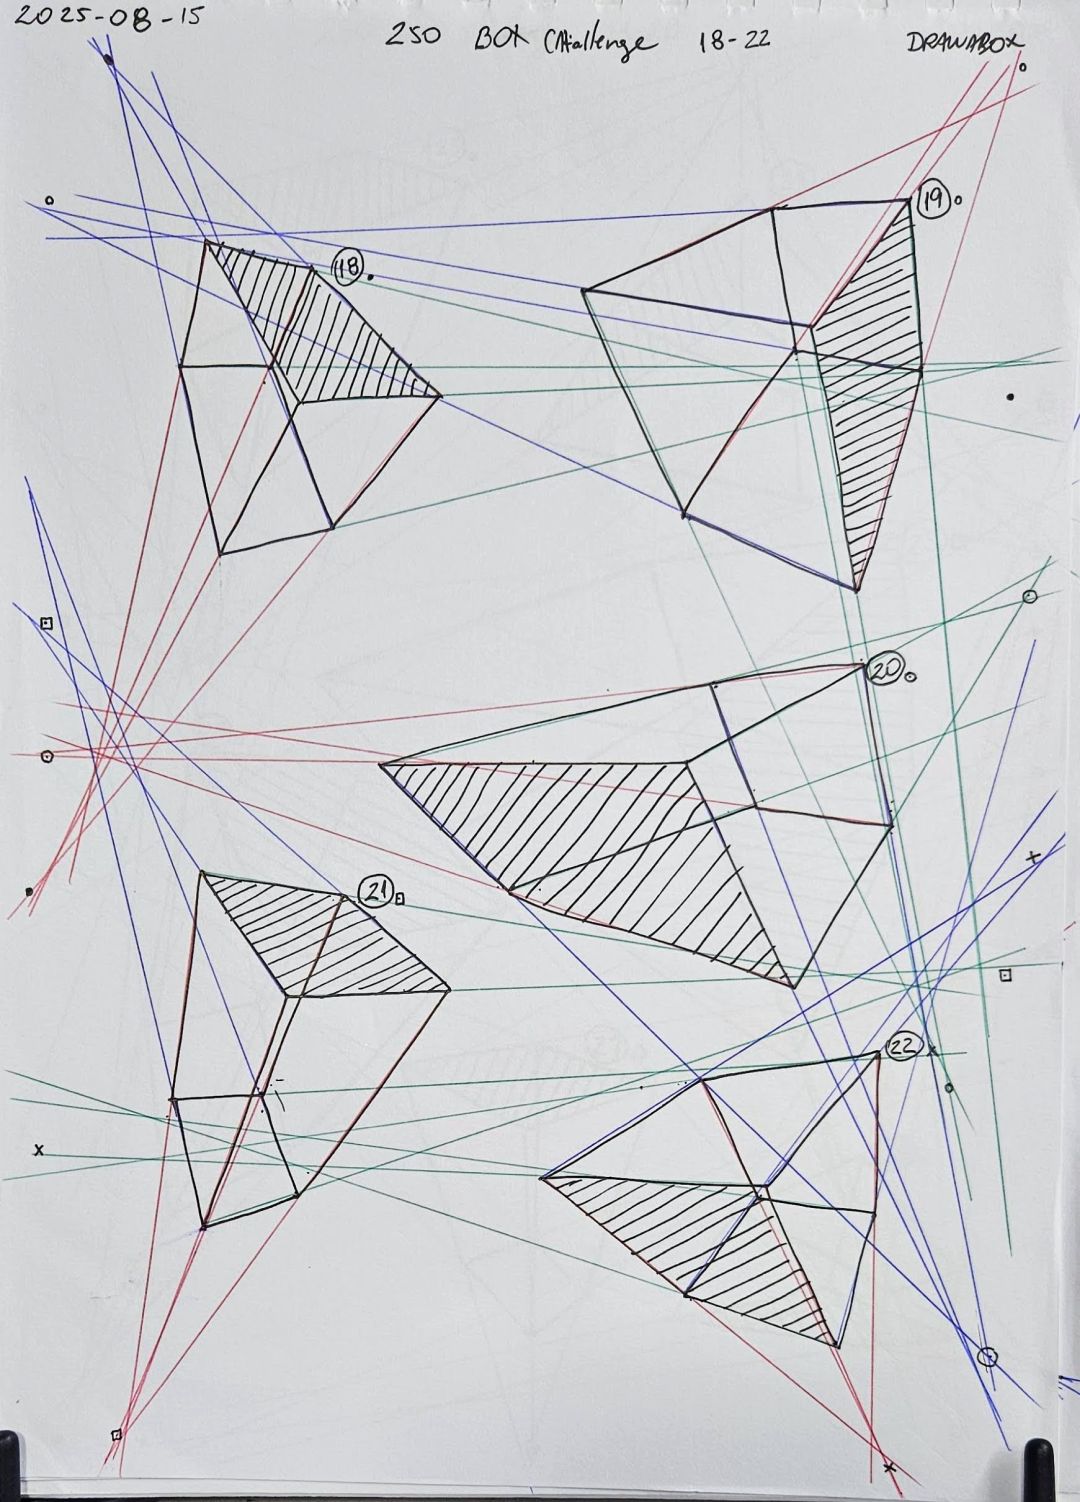 2025-08-15
250 BOX CHallenge 18-22 DRAWABOX
18
19
20
21
22